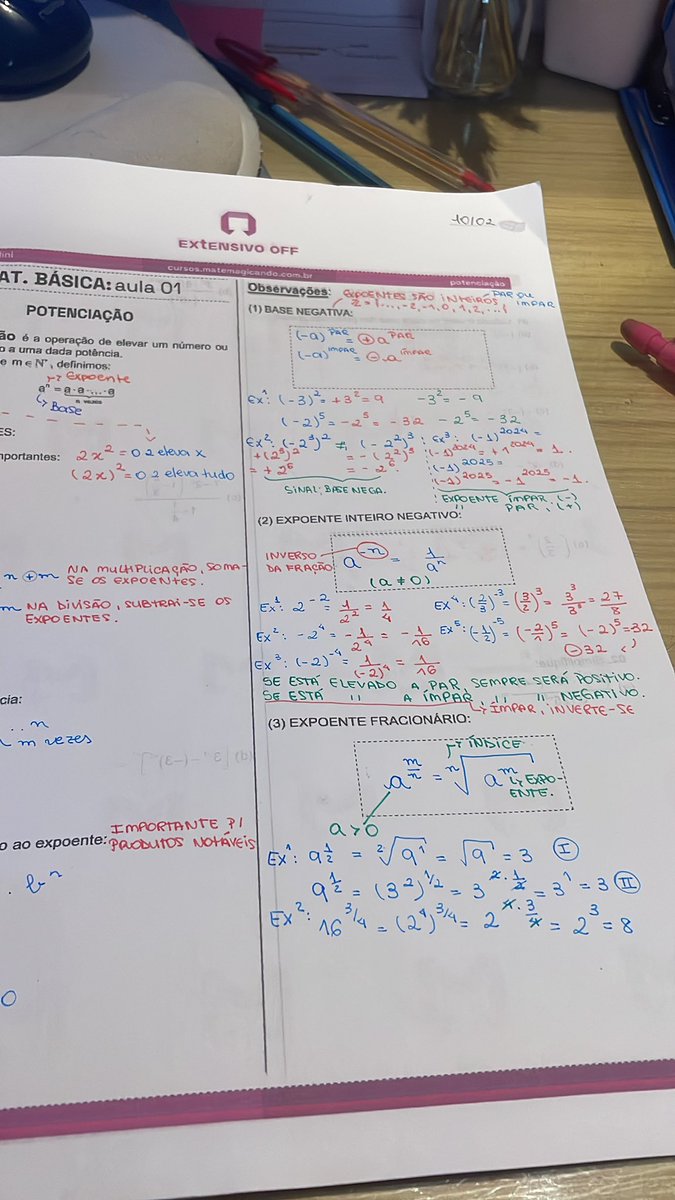 10/02
EXTENSIVO OFF
cursos.matemagicando.com.br
potenciação
AT. BÁSICA: aula 01
POTENCIAÇÃO
ão é a operação de elevar um número ou
o a uma dada potência.
e m ∈ N*, definimos:
↱ Expoente
aⁿ = a · a · ... · a
n vezes
↳ Base
ES:
mportantes: 2x² = O 2 eleva x
(2x)² = O 2 eleva tudo
n ⊕ m NA MULTIPLICAÇÃO, SOMA-
SE OS EXPOENTES.
m NA DIVISÃO, SUBTRAI-SE OS
EXPOENTES.
cia:
... n
m vezes
o ao expoente: IMPORTANTE P/
PRODUTOS NOTÁVEIS
. bⁿ
0
Observações: EXPOENTES SÃO INTEIROS PAR OU
Z = {..., -2, -1, 0, 1, 2, ...} IMPAR
(1) BASE NEGATIVA:
(-a)^PAR = ⊕ a^PAR
(-a)^IMPAR = ⊖ a^IMPAR
Ex¹: (-3)² = +3² = 9 -3² = -9
(-2)⁵ = -2⁵ = -32 -2⁵ = -32
Ex²: (-2³)² ≠ (-2²)³
+(2³)² = -(2²)³
= +2⁶ = -2⁶
SINAL; BASE NEGA.
Ex³: (-1)²⁰²⁴
(-1)²⁰²⁴ = +1²⁰²⁴ = 1.
(-1)²⁰²⁵
(-1)²⁰²⁵ = -1²⁰²⁵ = -1.
EXPOENTE ÍMPAR, (-)
" PAR, (+)
(2) EXPOENTE INTEIRO NEGATIVO:
INVERSO
DA FRAÇÃO
a⁻ⁿ = 1/aⁿ
(a ≠ 0)
Ex¹: 2⁻² = 1/2² = 1/4 Ex⁴: (2/3)⁻³ = (3/2)³ = 3³/3³ = 27/8
Ex²: -2⁻⁴ = -1/2⁴ = -1/16 Ex⁵: (-1/2)⁻⁵ = (-2/1)⁵ = (-2)⁵ = 32
⊖32
Ex³: (-2)⁻⁴ = 1/(-2)⁴ = 1/16
SE ESTÁ ELEVADO A PAR, SEMPRE SERÁ POSITIVO.
SE ESTÁ " A ÍMPAR, " " NEGATIVO.
↳ ÍMPAR, INVERTE-SE
(3) EXPOENTE FRACIONÁRIO:
↱ ÍNDICE
a^(m/n) = ⁿ√a^m ↳ EXPO-
ENTE.
a > 0
Ex¹: 9^(1/2) = ²√9¹ = √9 = 3 (I)
9^(1/2) = (3²)^(1/2) = 3^(2·1/2) = 3¹ = 3 (II)
Ex²: 16^(3/4) = (2⁴)^(3/4) = 2^(4·3/4) = 2³ = 8